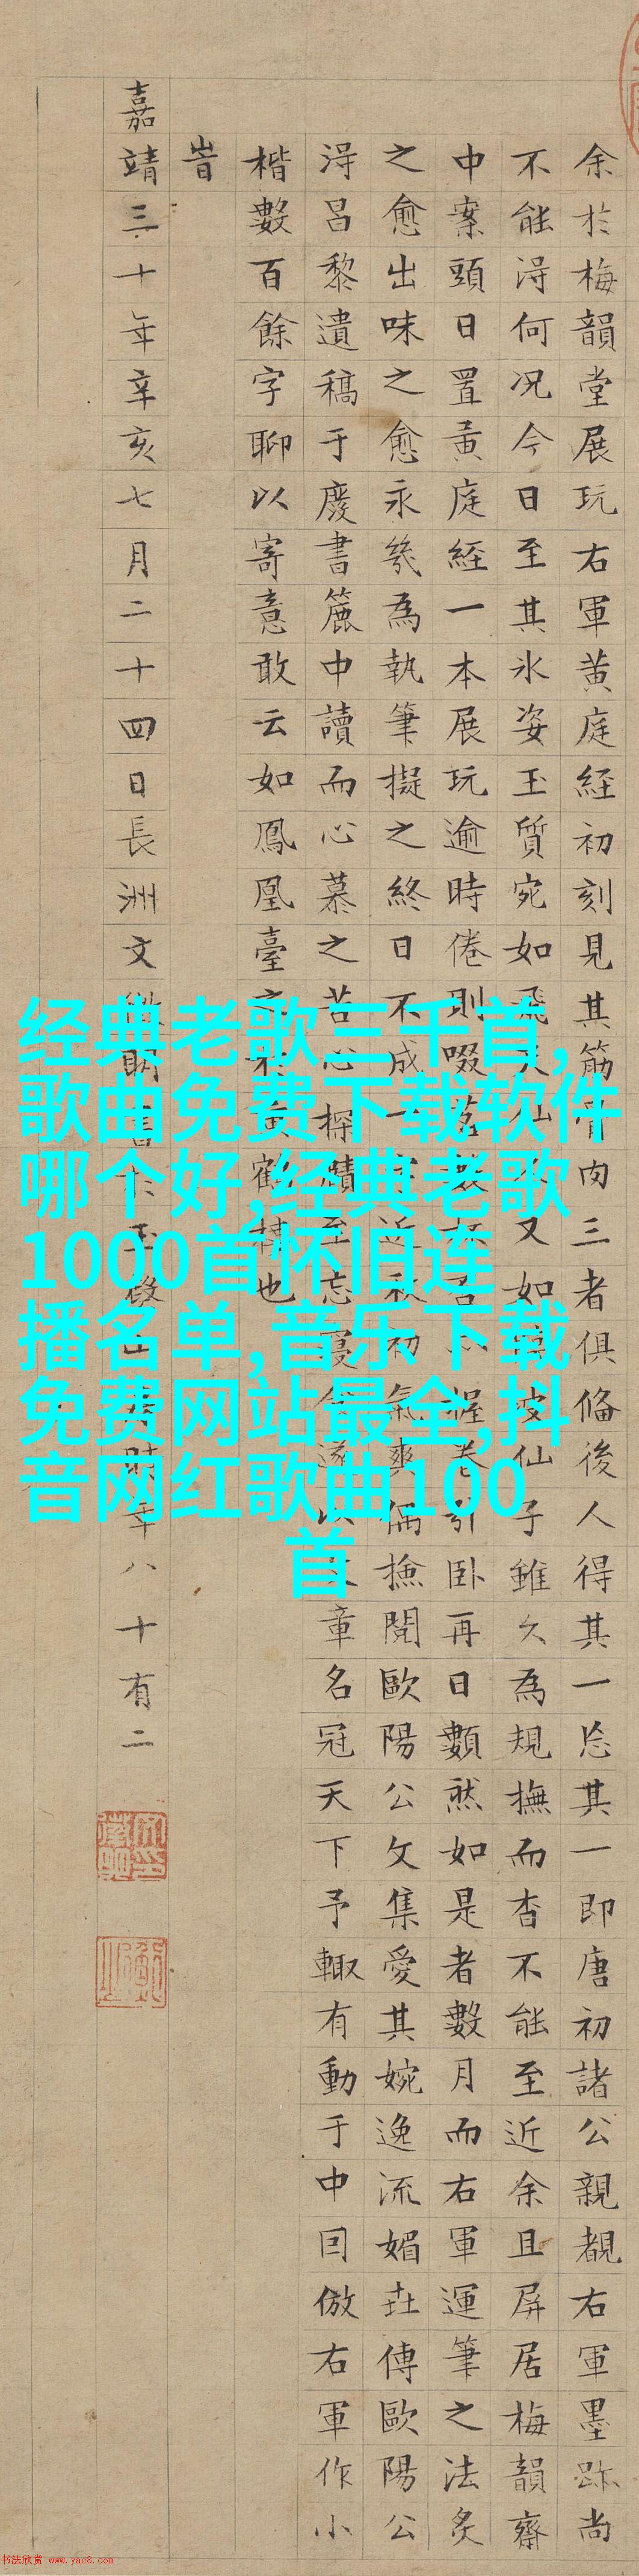 余於梅韻堂展玩右軍黄庭經初刻見其筋骨肉三者俱俻後人得其一忘其一即唐初諸公親覩右軍墨跡尚
不能淂何况今日至其氷姿玉質宛如飛仙又如波仙子雖久為規撫而杳不能至近余且屏居梅韻齋
中案頭日置黄庭經一本展玩逾時倦則啜茗握卷引卧再日數然如是者數月而右軍運筆之法炙
之愈出味之愈永㡬為執筆擬之終日不成一字近秋初氣爽偶撿閱歐陽公文集愛其婉逸流媚傳歐陽公
淂吕黎遺稿于廢書簏中讀而心慕之苦心探賾至忘寢食遂以文章名冠天下予輙有動于中囙倣右軍作小
楷數百餘字聊以寄意敢云如鳳凰臺之於黄鶴樓也
旹
嘉靖三十年辛亥七月二十四日長洲文徵明書于玉磬山房時年八十有二
经典老歌三千首,
歌曲免费下载软件
哪个好,经典老歌
1000首怀旧连
播名单,音乐下载
免费网站最全,抖
音网红歌曲100
首
书法欣赏 www.yac8.com